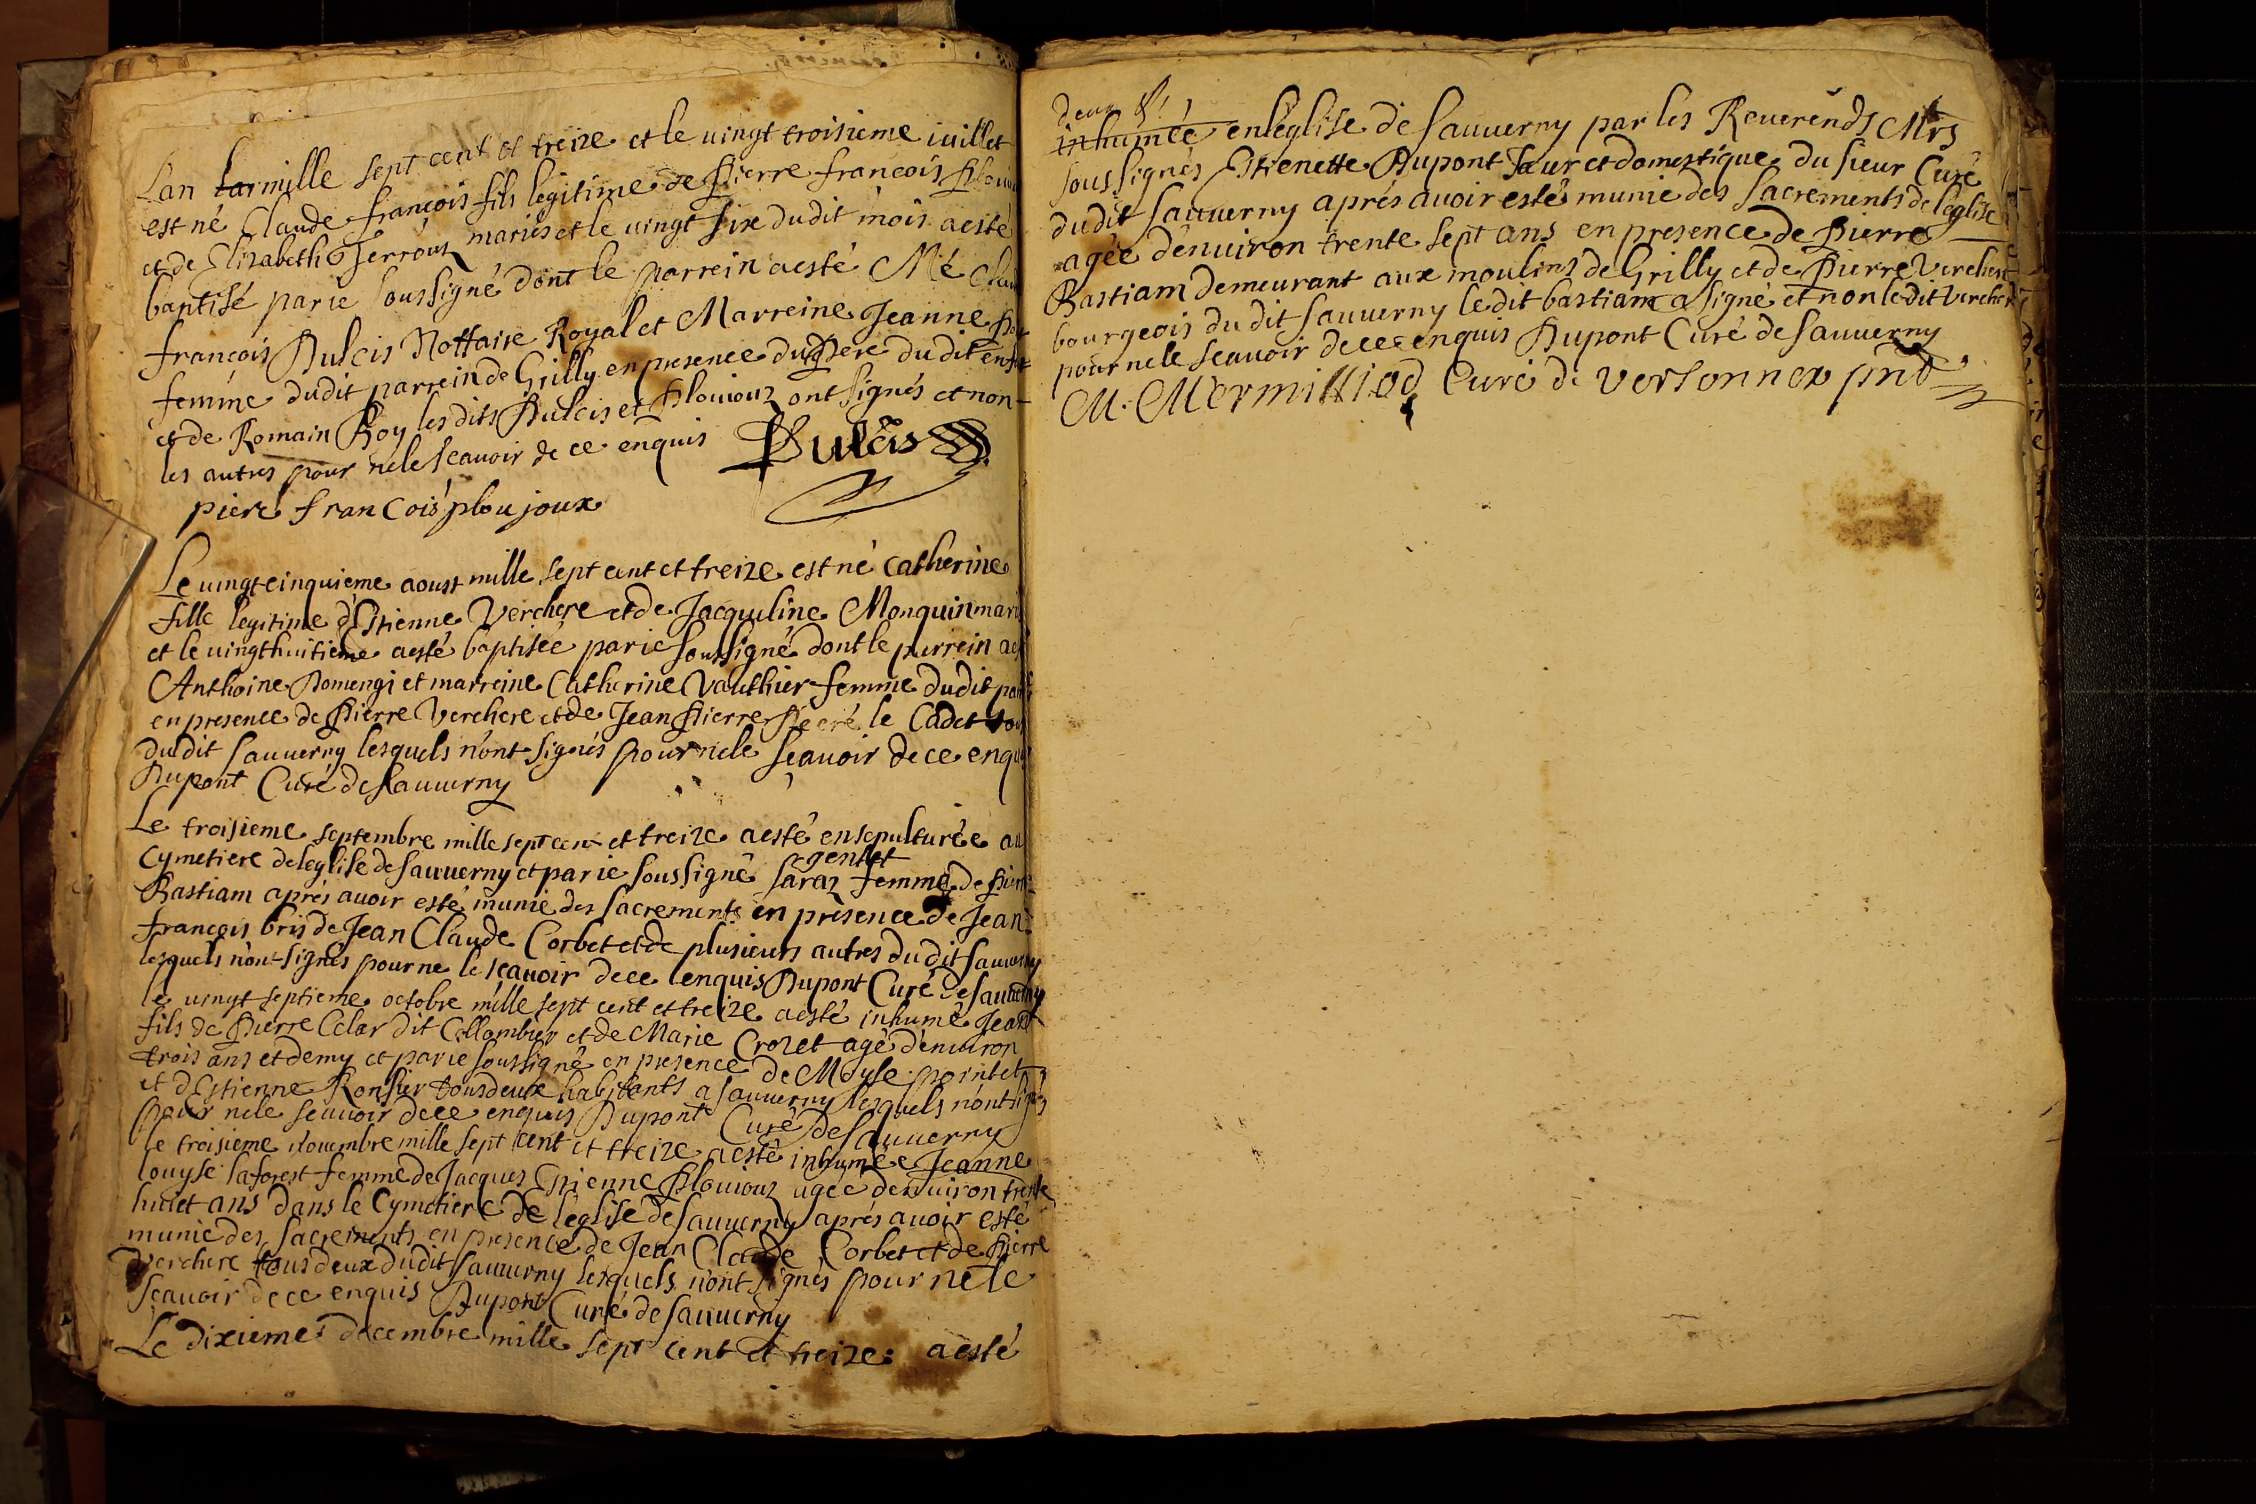 Lan mille sept cent et treize et le vingt troisieme iuillet
est né Claude françois fils legitime de Pierre françois
et de Elisabeth Ferrouz mariés et le vingt six dudit mois a esté
baptisé par ie soussigné dont le parrein a esté Me
françois Dulcis Nottaire Royal et Marreine Jeanne
femme dudit parrein de Grilly en presence du Pere du dit
et de Romain Roy lesdits Dulcis et Ploujouz ont signés et non
les autres pour ne le scauoir de ce enquis Dulcis
piere franCois ploujoux
Le vingt cinquieme aoust mille sept cent et treize est né Catherine
fille legitime d'Estienne Verchere et de Jacqueline Monquin
et le vingt huitieme a esté baptisée par ie soussigné dont le parrein
Anthoine Domengi et marreine Catherine Vauthier femme dudit
en presence de Pierre Verchere et de Jean Pierre le Cadet
dudit sauuerny lesquels n'ont signés pour ne le scauoir de ce
Dupont Curé de sauuerny
Le troisieme septembre mille sept cent et treize a esté ensepulturée au
Cymetiere de l'eglise de sauuerny et par ie soussigné saraz gentet femme de
Bastiam aprés auoir esté munie des sacrements en presence de Jean
françois bris de Jean Claude Corbet et de plusieurs autres dudit sauuerny
lesquels n'ont signés pour ne le scauoir de ce enquis Dupont Curé de sauuerny
le vingt septieme octobre mille sept cent et treize a esté inhumé Jean
fils de Pierre Celar dit Collombier et de Marie Crozet agé d'enuiron
trois ans et demy et par ie soussigné en presence de Moyse pointet
et d'Estienne Ronsier tous deux habitants a sauuerny lesquels n'ont
pour ne le scauoir de ce enquis Dupont Curé de sauuerny
le troisieme nouembre mille sept cent et treize a esté inhumée Jeanne
louyse laforest femme de Jacques Estienne Ploujouz agée d'enuiron trente
huict ans dans le Cymetiere de l'eglise de sauuerny aprés auoir esté
munie des sacrements en presence de Jean Claude Corbet et de Pierre
Verchere tous deux dudit sauuerny lesquels n'ont signés pour ne le
scauoir de ce enquis Dupont Curé de sauuerny
Le dixieme decembre mille sept cent et treize a esté
inhumée en l'eglise de sauuerny par les Reuerends Mrs
soussignés Estienette Dupont sœur et domestique du sieur Curé
dudit sauuerny aprés auoir esté munie des sacrements de l'eglise
agée d'enuiron trente sept ans en presence de Pierre
Bastiam demeurant aux moulins de Grilly et de Pierre Verchere
bourgeois du dit sauuerny le dit bastiam a signé et non ledit Verchere
pour ne le scauoir de ce enquis Dupont Curé de sauuerny
M. Mermilliod Curé de versonnex pnt